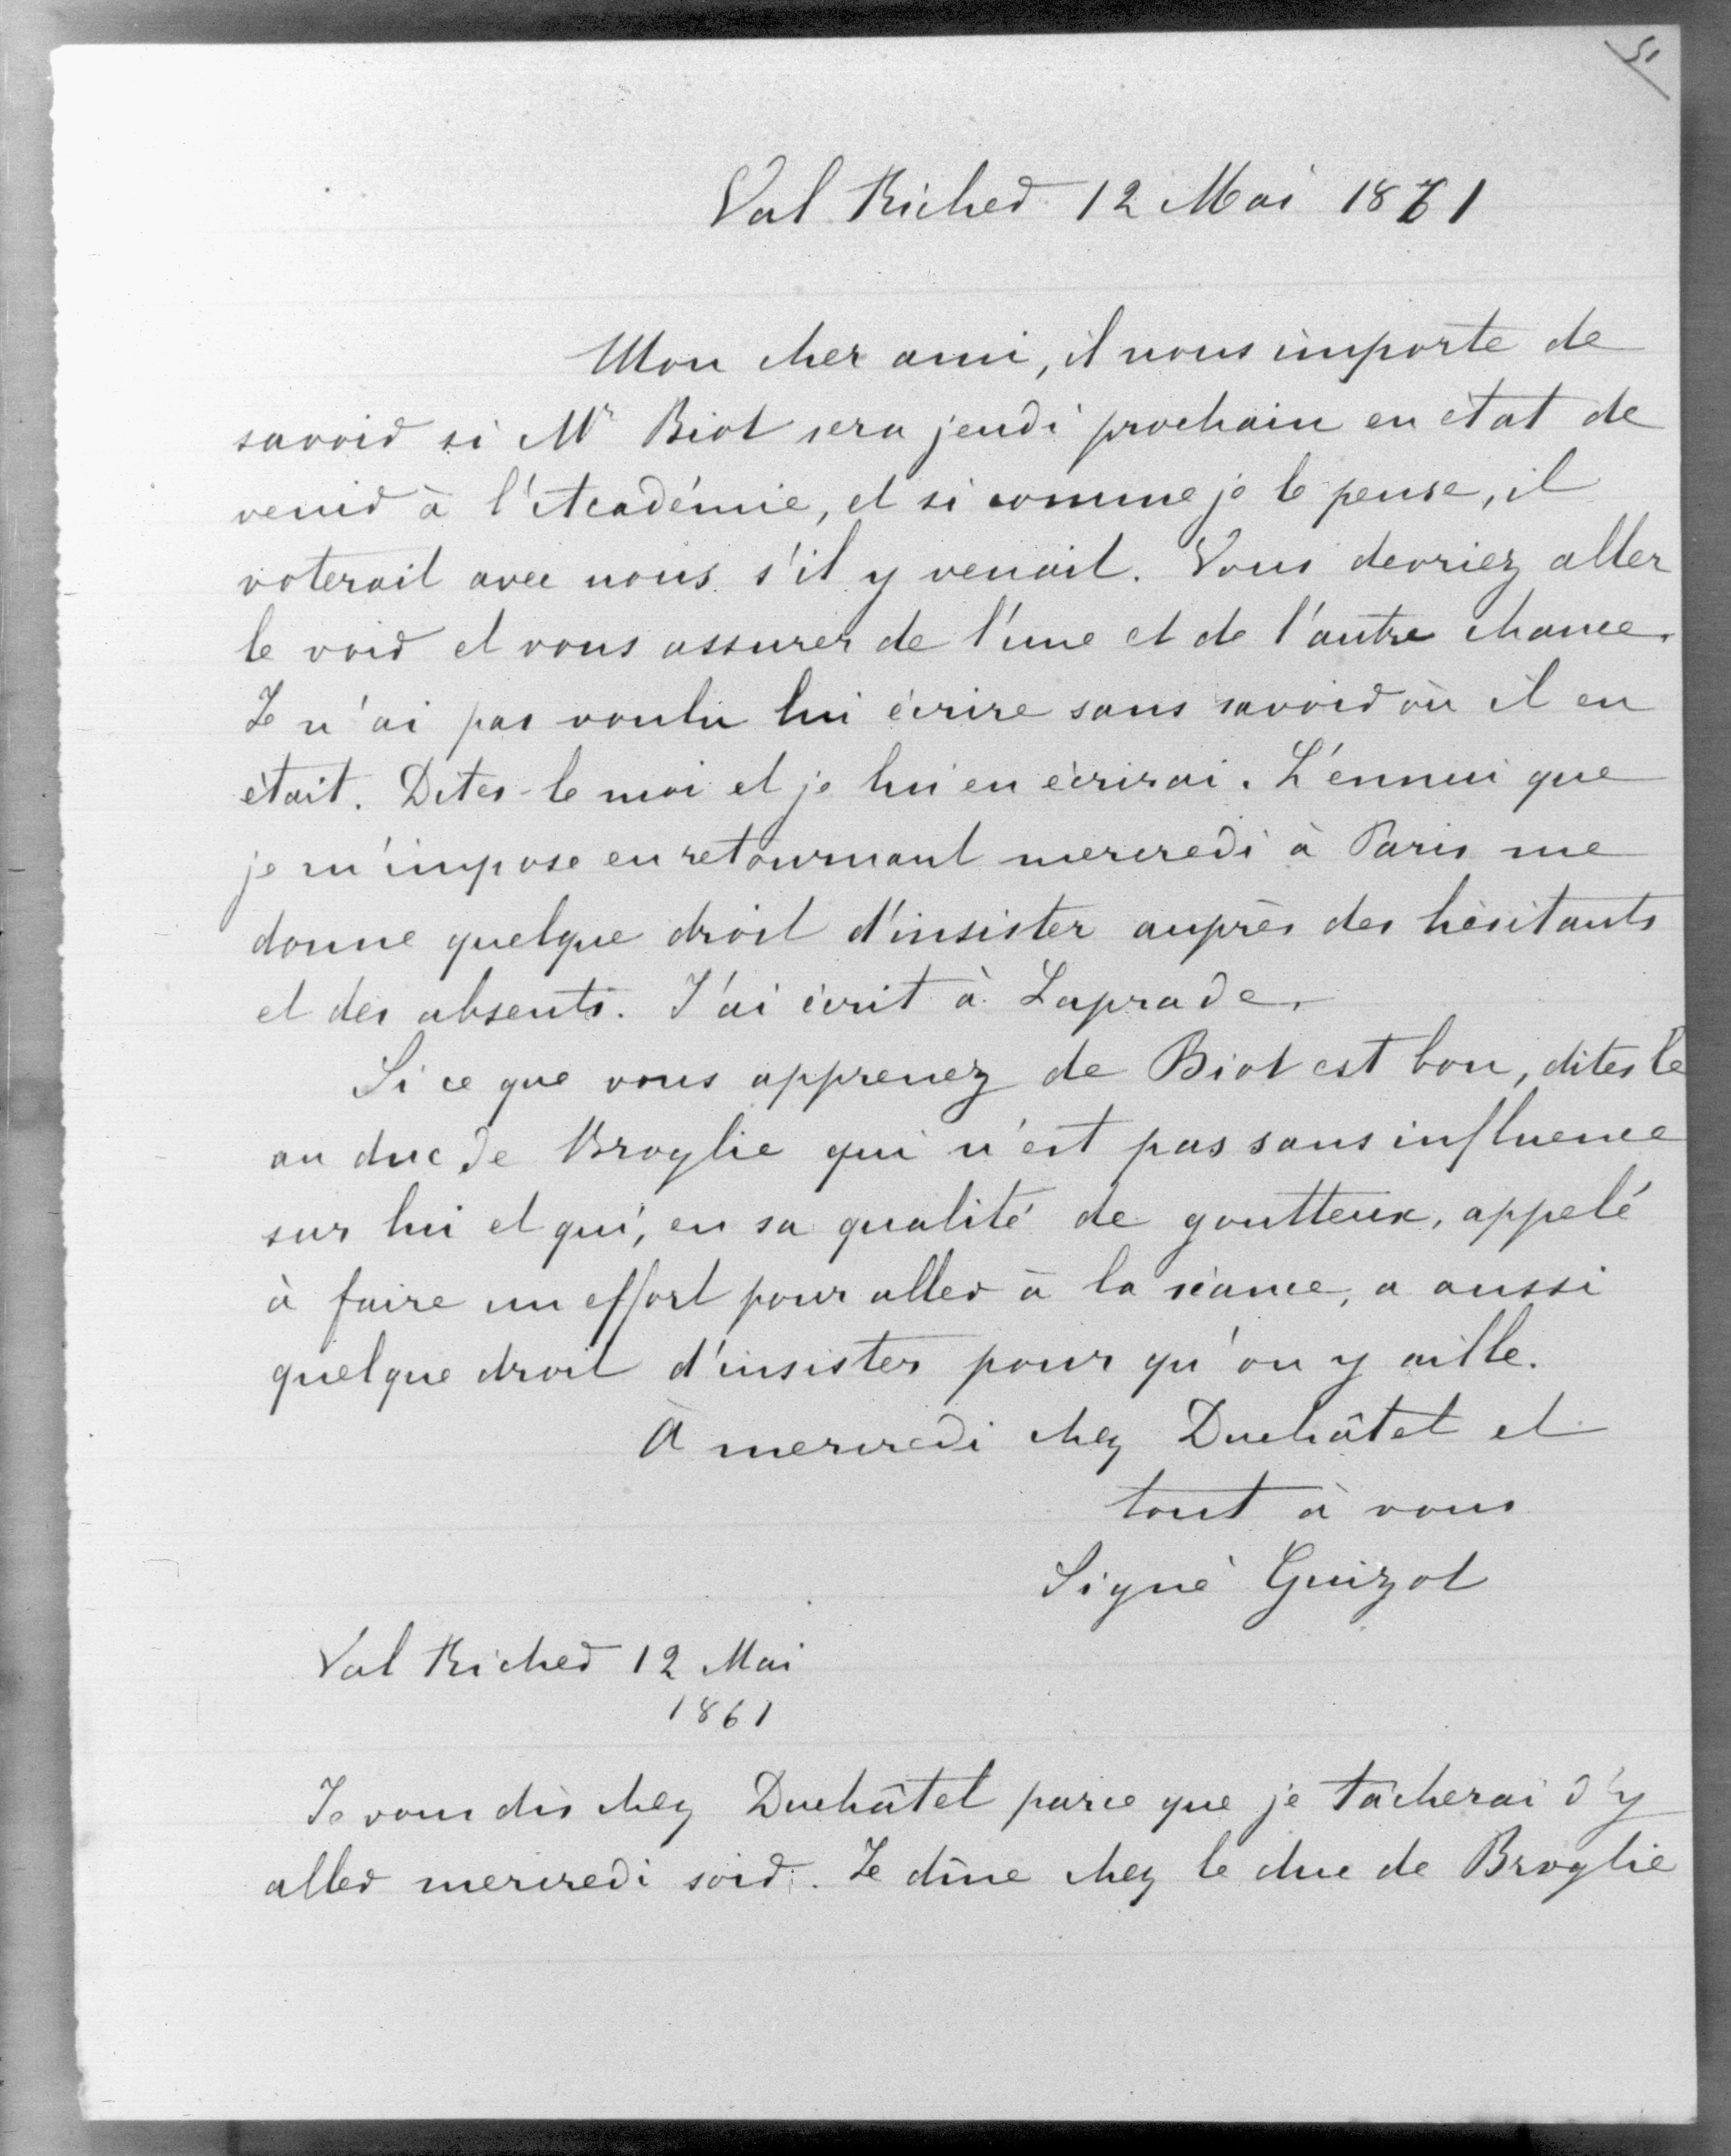 51
Val Richer 12 Mai 1871
Mon cher ami, il nous importe de
savoir si Mr Biot sera jeudi prochain en état de
venir à l'Académie, et si comme je le pense, il
voterait avec nous s'il y venait. Vous devriez aller
le voir et vous assurer de l'une et de l'autre chance.
Je n'ai pas voulu lui écrire sans savoir où il en
était. Dites-le moi et je lui en écrirai. L'ennui que
je m'impose en retournant mercredi à Paris me
donne quelque droit d'insister auprès des hésitants
et des absents. J'ai écrit à Laprade.
Si ce que vous apprenez de Biot est bon, dites le
au duc de Broglie qui n'est pas sans influence
sur lui et qui, en sa qualité de goutteux, appelé
à faire un effort pour aller à la séance, a aussi
quelque droit d'insister pour qu'on y aille.
A mercredi chez Duchâtel et
tout à vous
Signé Guizot
Val Richer 12 Mai
1861
Je vous dis chez Duchâtel parce que je tâcherai d'y
aller mercredi soir. Je dîne chez le duc de Broglie